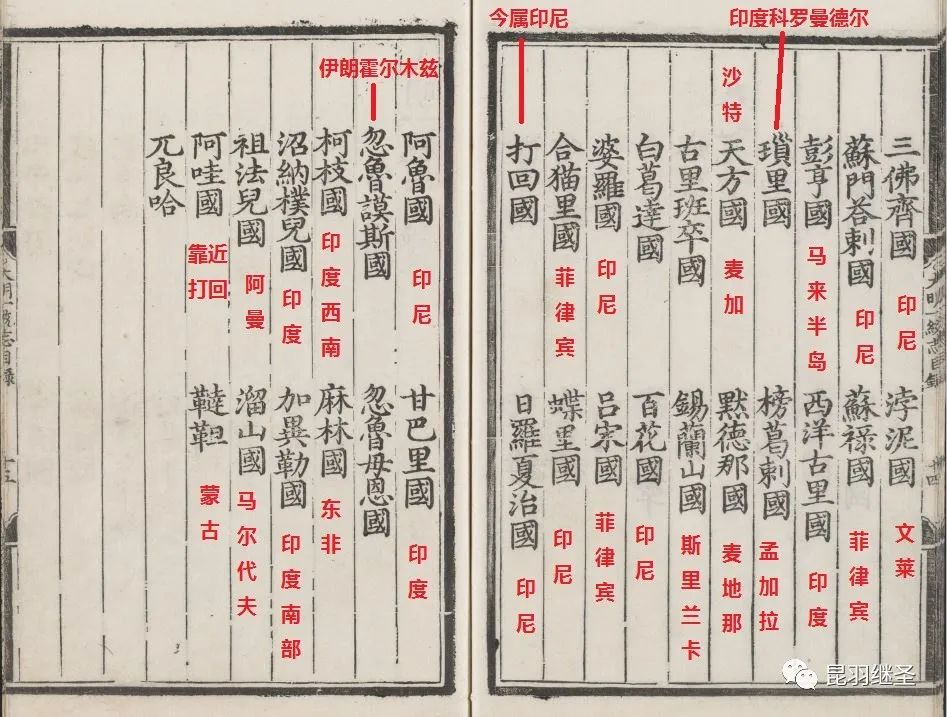 印度科罗曼德尔
今属印尼
三佛齊國 印尼
浡泥國 文莱
蘇門荅剌國 印尼
蘇祿國 菲律宾
彭亨國 马来半岛
西洋古里國 印度
瑣里國
榜葛剌國 孟加拉
沙特
天方國 麦加
默德那國 麦地那
古里班卒國
錫蘭山國 斯里兰卡
白葛達國
百花國 印尼
婆羅國 印尼
呂宋國 菲律宾
合猫里國 菲律宾
碟里國 印尼
打回國
日羅夏治國 印尼
伊朗霍尔木兹
阿魯國 印尼
甘巴里國 印度
忽魯謨斯國
忽魯母恩國
柯枝國 印度西南
麻林國 东非
沼納樸兒國 印度
加異勒國 印度南部
祖法兒國 阿曼
溜山國 马尔代夫
阿哇國 靠近
打回
韃靼 蒙古
兀良哈
大明一統志目錄
十五
昆羽继圣